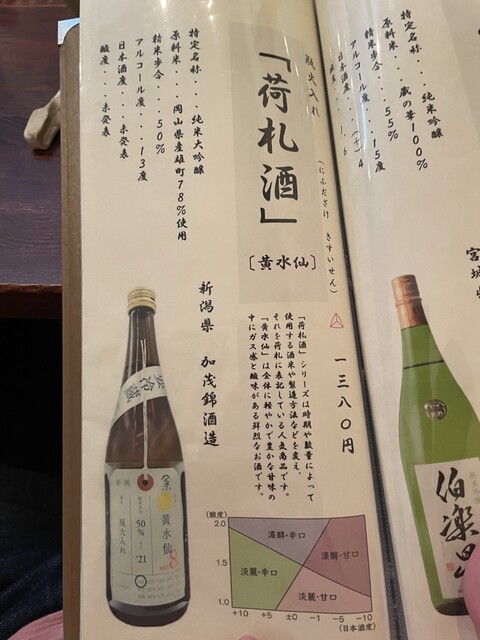 特定名称...純米吟醸
原料米...蔵の華100%
精米歩合...55%
アルコール度...15度
日本酒度...(+)4
酸度...1.6
伯楽星
瓶火入れ
「荷札酒」
〔黄水仙〕
(にふだざけ きすいせん)
特定名称...純米大吟醸
原料米...岡山県産雄町78%使用
精米歩合...50%
アルコール度...13度
日本酒度...未発表
酸度...未発表
一三八〇円
「荷札酒」シリーズは時期や数量によって
使用する酒米や製造方法などを変え、
それを荷札に表記している人気商品です。
「黄水仙」は全体に軽やかで豊かな甘味の
中にガス感と酸味がある鮮烈なお酒です。
新潟県 加茂錦酒造
要冷蔵
黄水仙
50%
'21
瓶火入れ
(酸度)
2.0
1.5
1.0
濃醇・辛口
濃醇・甘口
淡麗・辛口
淡麗・甘口
+10 +5 ±0 -1 -5 -10
(日本酒度)